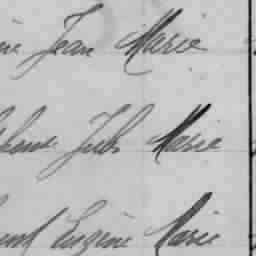 Jean Marie
Jules Marie
Eugène Marie